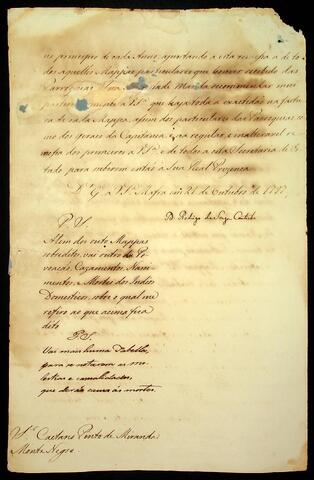 no principio de cada Anno, ajuntando a esta remessa a de to
dos aquelles Mappas particulares que houver recebido das
Parroquias. Sua Magestade Manda recommendar mui
particularmente a V. S.ª que haja toda a exactidão na factu
ra de cada Mappa, assim dos particulares das Parroquias co
mo dos geraes da Capitania: e na regular, e inalteravel re
messa dos primeiros a V. S.ª e de todos a esta Secretaria de Es
tado para subirem então á Sua Real Prezença
D.s G.e a V. S.ª Mafra em 21 de Outubro de 1797.
D. Rodrigo de Souza Coutinho
P. S.
Alem dos outo Mappas
sobreditos, vai outro da Po
voação, Cazamentos, Nasci
mentos, e Mortes dos Indios
Domesticos, sobre o qual me
refiro ao que acima fica
dito
P. S.
Vai mais huma Tabella,
para se notarem as mo
lestias e casualidades,
que derão causa ás mortes.
S.r Caetano Pinto de Miranda
Monte Negro